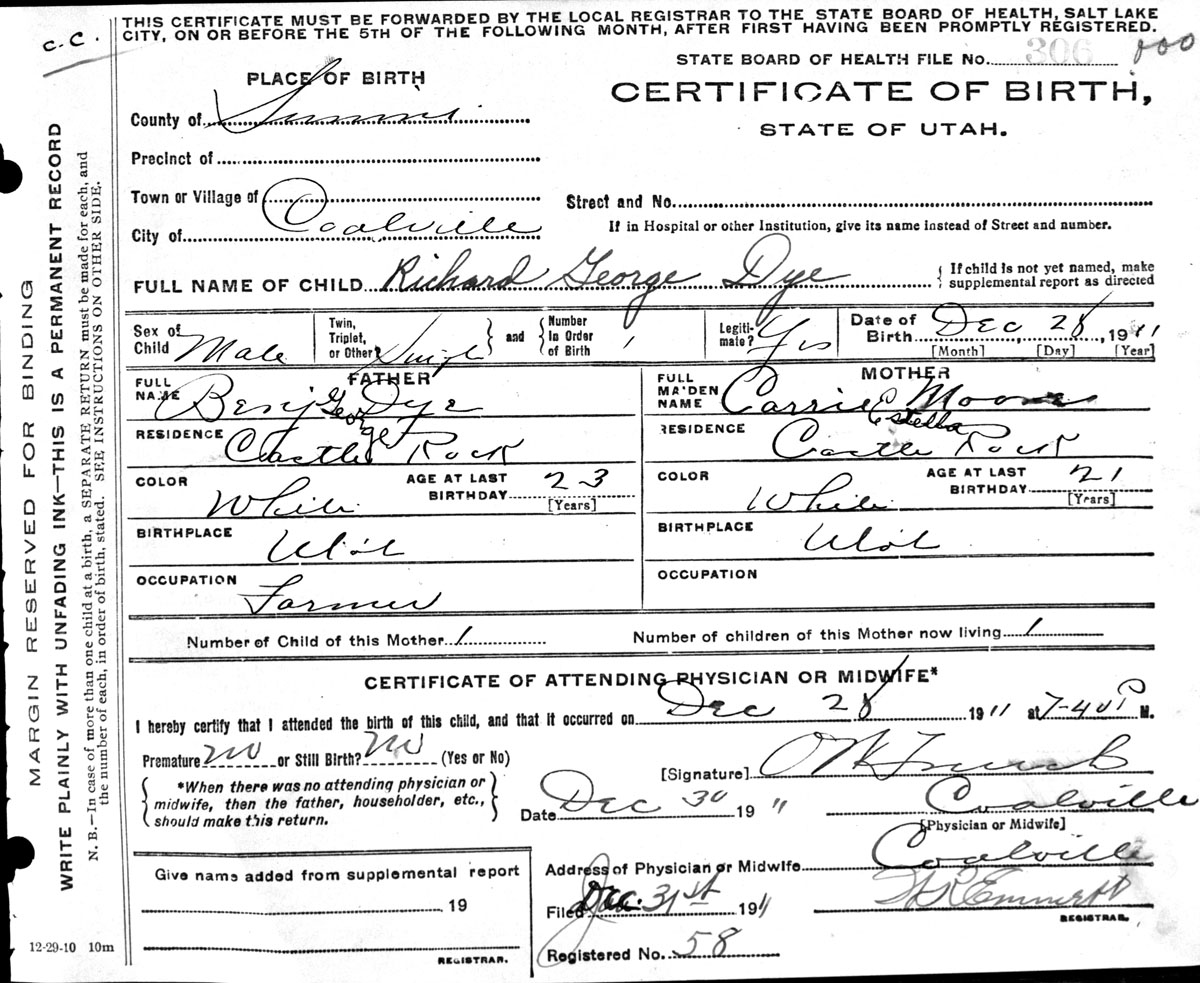 c.c.
THIS CERTIFICATE MUST BE FORWARDED BY THE LOCAL REGISTRAR TO THE STATE BOARD OF HEALTH, SALT LAKE
CITY, ON OR BEFORE THE 5TH OF THE FOLLOWING MONTH, AFTER FIRST HAVING BEEN PROMPTLY REGISTERED.
STATE BOARD OF HEALTH FILE No. 306
PLACE OF BIRTH
CERTIFICATE OF BIRTH,
STATE OF UTAH.
County of
Precinct of
Town or Village of
Street and No.
City of Coalville
If in Hospital or other Institution, give its name instead of Street and number.
FULL NAME OF CHILD Richard George Dye
If child is not yet named, make
supplemental report as directed
Sex of Child Male
Twin, Triplet, or Other?
and
Number In Order of Birth 1
Legiti-mate? Yes
Date of Birth Dec 28, 1911
[Month] [Day] [Year]
FATHER
FULL NAME Benj George Dye
RESIDENCE Castle Rock
COLOR White
AGE AT LAST BIRTHDAY 23
[Years]
BIRTHPLACE Utah
OCCUPATION Farmer
MOTHER
FULL MAIDEN NAME Carrie Estella Moore
RESIDENCE Castle Rock
COLOR White
AGE AT LAST BIRTHDAY 21
[Years]
BIRTHPLACE Utah
OCCUPATION
Number of Child of this Mother 1
Number of children of this Mother now living 1
CERTIFICATE OF ATTENDING PHYSICIAN OR MIDWIFE*
I hereby certify that I attended the birth of this child, and that it occurred on Dec 28 1911 at 7-40 P M.
Premature no or Still Birth? no (Yes or No)
[Signature]
*When there was no attending physician or
midwife, then the father, householder, etc.,
should make this return.
Date Dec 30 19 11
Coalville
[Physician or Midwife]
Address of Physician or Midwife Coalville
Give name added from supplemental report
19
REGISTRAR.
Filed Dec. 31st 1911
W R Emmett
REGISTRAR.
Registered No. 58
12-29-10 10m
MARGIN RESERVED FOR BINDING
WRITE PLAINLY WITH UNFADING INK—THIS IS A PERMANENT RECORD
N. B.—In case of more than one child at a birth, a SEPARATE RETURN must be made for each, and
the number of each, in order of birth, stated. SEE INSTRUCTIONS ON OTHER SIDE.